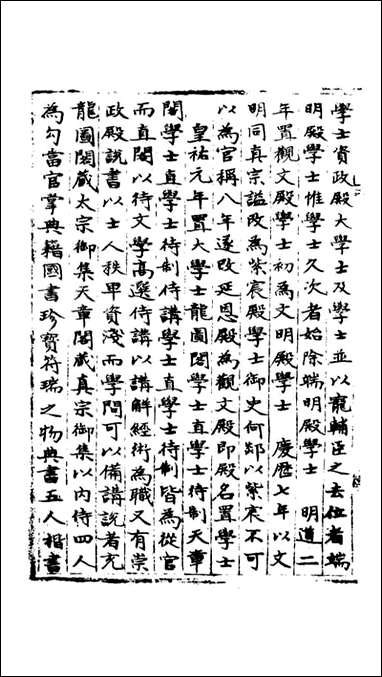 學士資政殿大學士及學士並以寵輔臣之去位者端
明殿學士惟學士久次者始除端明殿學士　明道二
年置觀文殿學士初為文明殿學士　慶曆七年以文
明同真宗謚改為紫宸殿學士御史何郯以紫宸不可
以為官稱八年遂改延恩殿為觀文殿即殿名置學士
皇祐元年置大學士龍圖閣學士直學士待制天章
閣學士直學士待制侍講學士直學士待制皆為從官
而直閣以待文學高選侍講以講解經術為職又有崇
政殿說書以士人秩卑資淺而學問可以備講說者充
龍圖閣藏太宗御集天章閣藏真宗御集以內侍四人
為勾當官掌典籍國書珍寶符瑞之物典書五人楷書